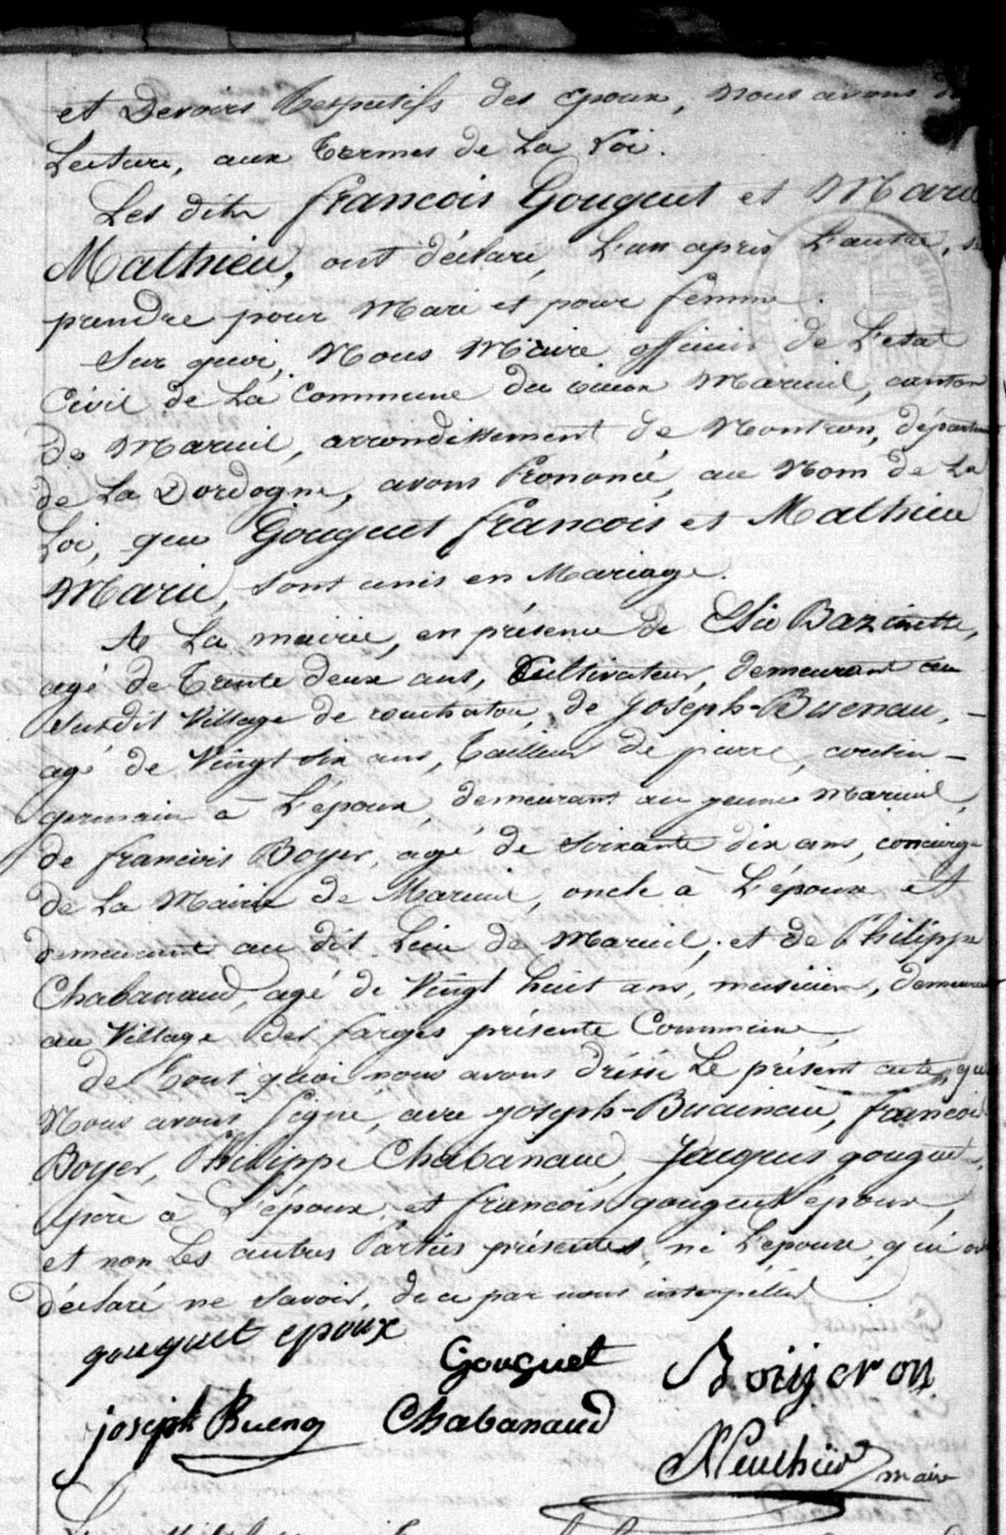 et Devoirs Respectifs des époux, nous avons
Lecture, aux Termes de La Loi.
Les dits francois Gouguet et Marie
Mathieu, ont déclaré, L'un après L'autre, se
prendre pour Mari et pour femme.
Sur quoi, Nous Maire officier de L'etat
Civil de La Commune du vieux Mareuil, canton
de Mareuil, arrondissement de Nontron, départ
de La Dordogne, avons Prononcé, au Nom de La
Loi, que Gouguet francois et Mathieu
Marie, sont unis en Mariage.
A La mairie, en présence de Elie Bazinette,
agé de Trente deux ans, Cultivateur, demeurant au
susdit Village de de Joseph-Buenau,
agé de Vingt six ans, Tailleur de pierre, cousin-
germain à L'époux, demeurant au jeune Mareuil,
de francois Boyer, agé de soixante dix ans, concierge
de La Mairie de Mareuil, oncle à L'époux et
demeurant au dit Lieu de Mareuil; et de Philippe
Chabanaud, agé de Vingt huit ans, musicien, demeurant
au Village des farges présente Commune,
de Tout quoi nous avons dréssé Le présent acte, que
Nous avons Signé, avec joseph-Buainau, francois
Boyer, Philippe Chabanaud, Jacques gouguet,
père à L'époux, et francois gouguet époux,
et non Les autres Parties présentes, ni L'epouse, qui ont
déclaré ne savoir, de ce par nous interpéllés
gouguet epoux
Gouguet
joseph Chabanaud
maire